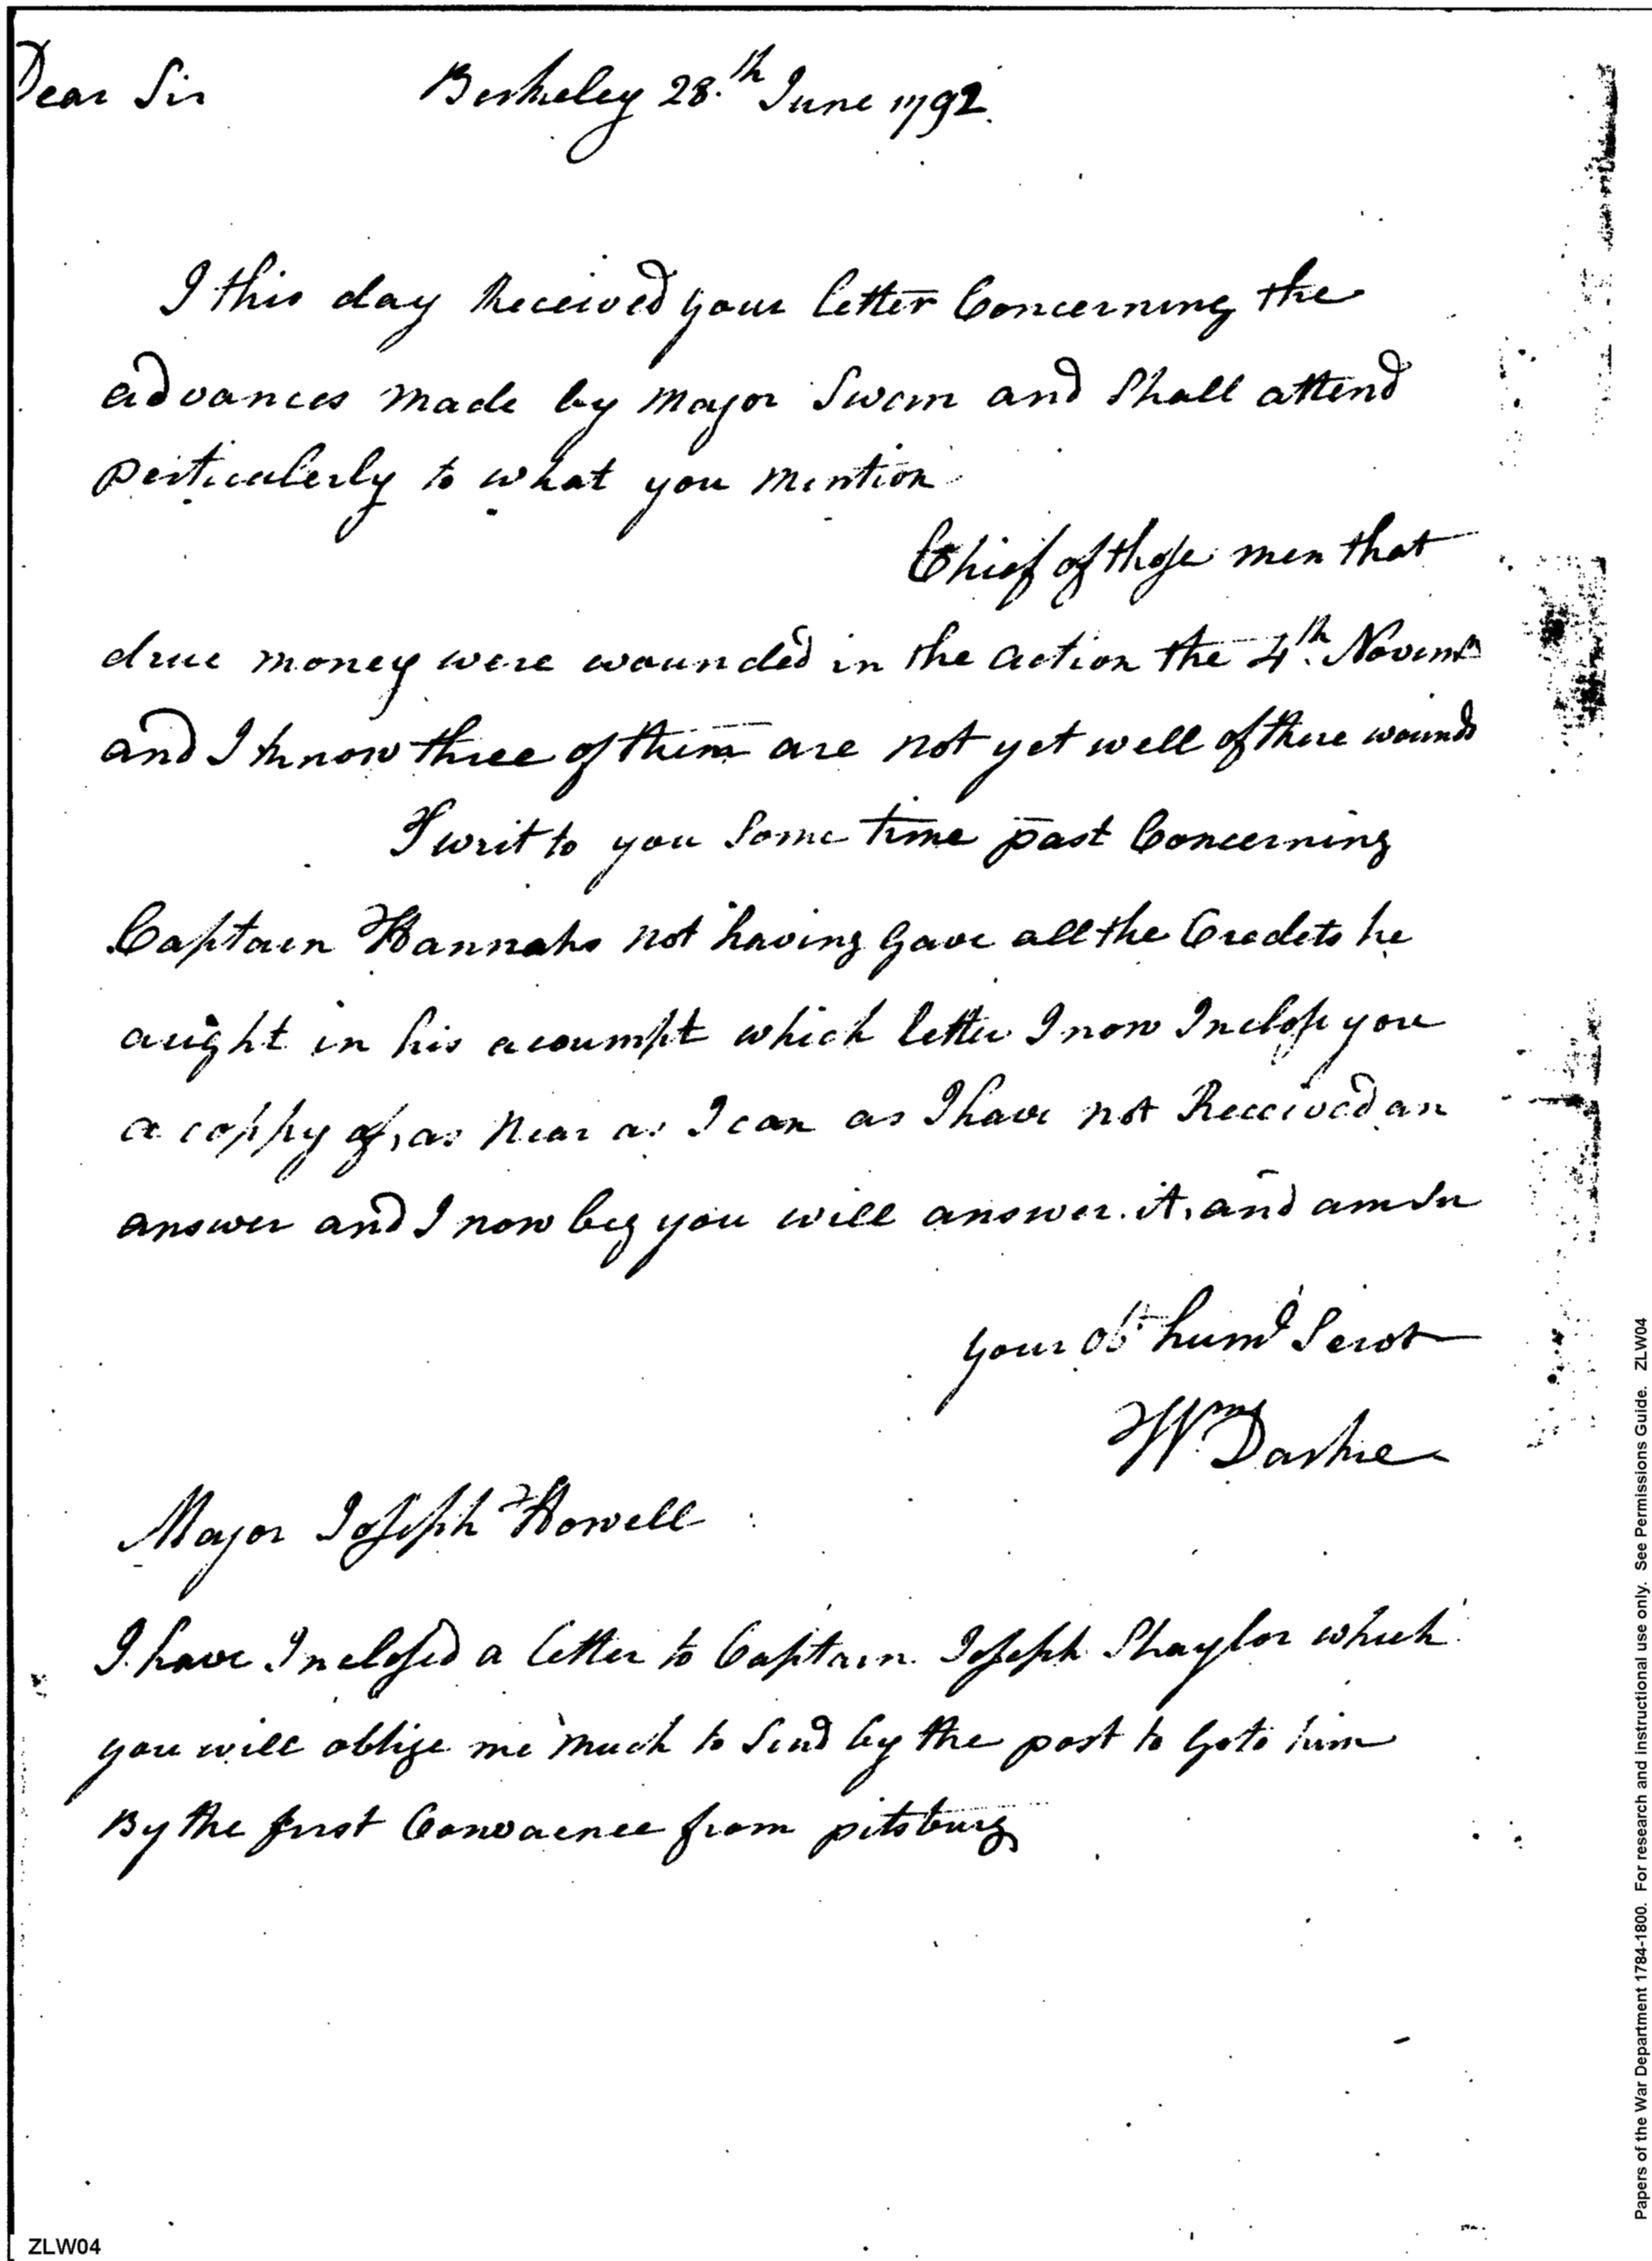 Dear Sir Berkeley 28.th June 1792.
I this day Received your letter Concerning the
advances made by Major Swan and Shall attend
perticulerly to what you mention
Chief of those men that
drue money were wounded in the action the 4th. Novemr
and I know three of them are not yet well of there wounds
I writ to you Some time past Concerning
Captaen Hannahs not having gave all the Credets he
aught in his acoumpt which letter I now Inclose you
a coppy of, as near as I can as I have not Received an
answer and I now beg you will answer it, and am Sir
your obt huml Servt
Wm Darke
Major Joseph Howell
I have Inclosed a letter to Captain Joseph Shaylor which
you will oblige me much to Send by the post to go to him
By the first Convaence from pitsburg
ZLW04
Papers of the War Department 1784-1800. For research and instructional use only. See Permissions Guide. ZLW04